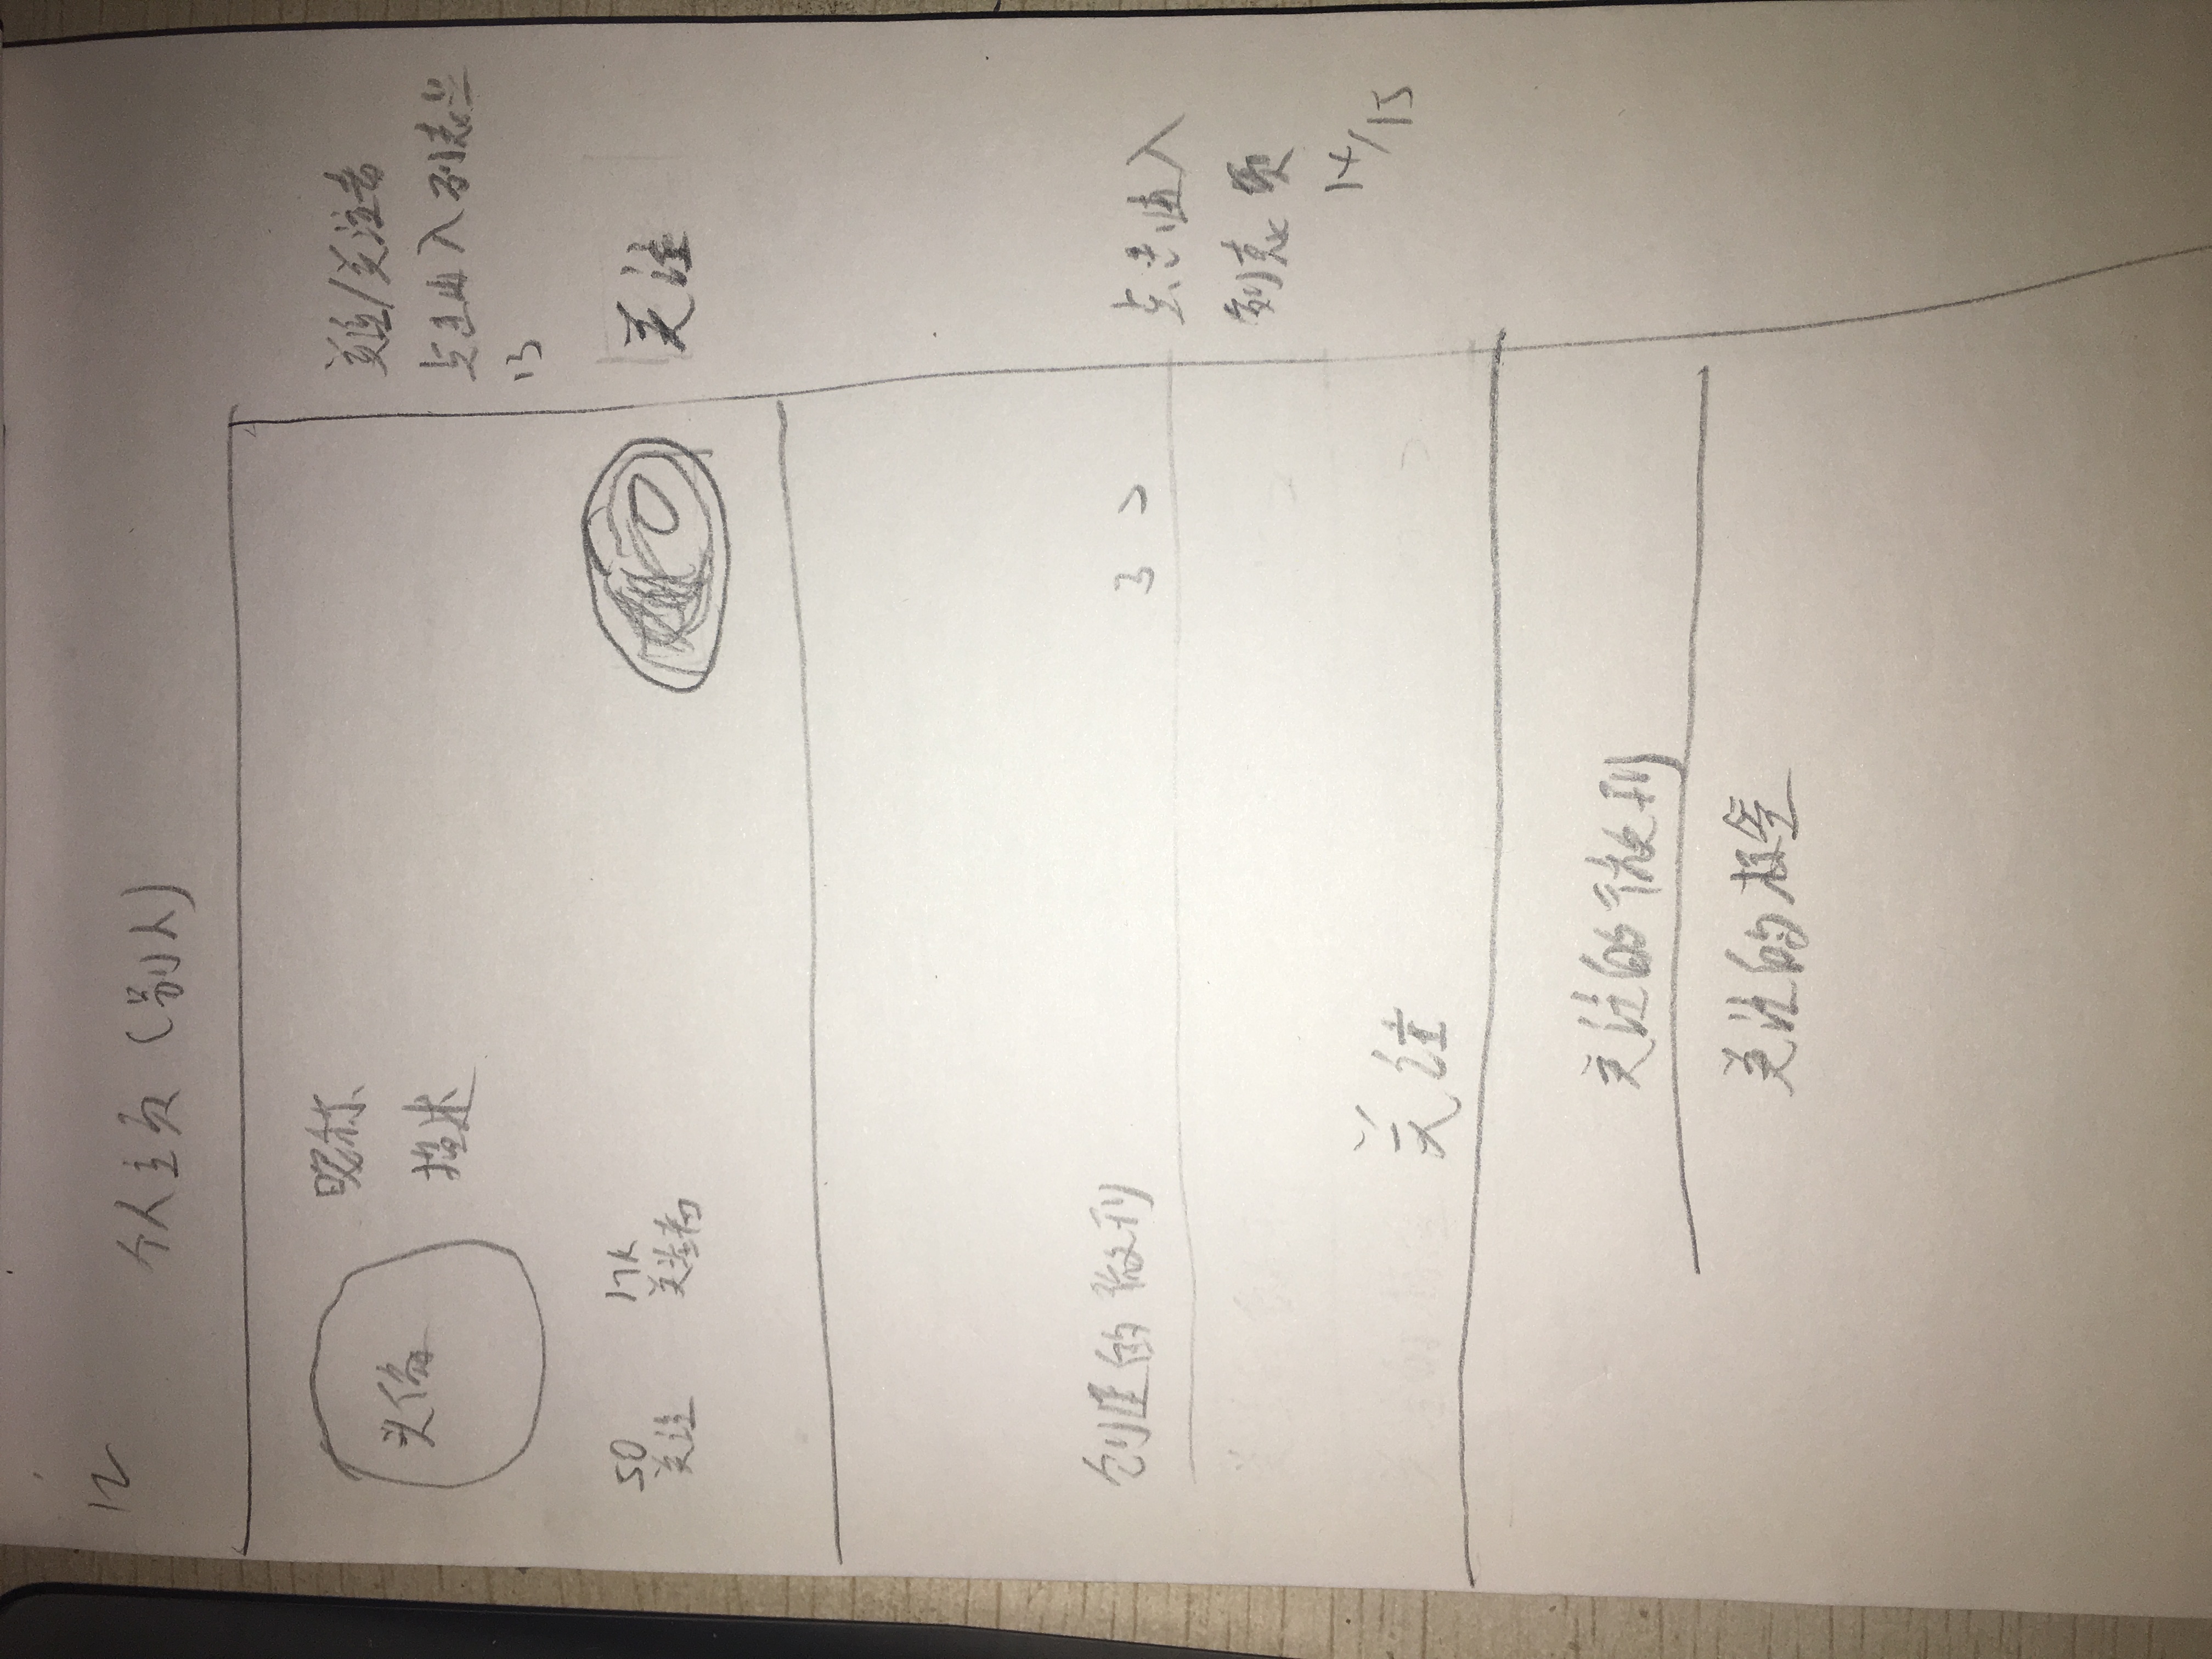 12
个人主页（别人）
头像
昵称
描述
50
关注
17K
关注者
关注/关注者
点击进入列表
13
关注
创建的微刊 3 >
点击进入
列表页
14/15
关注
关注的微刊
关注的标签